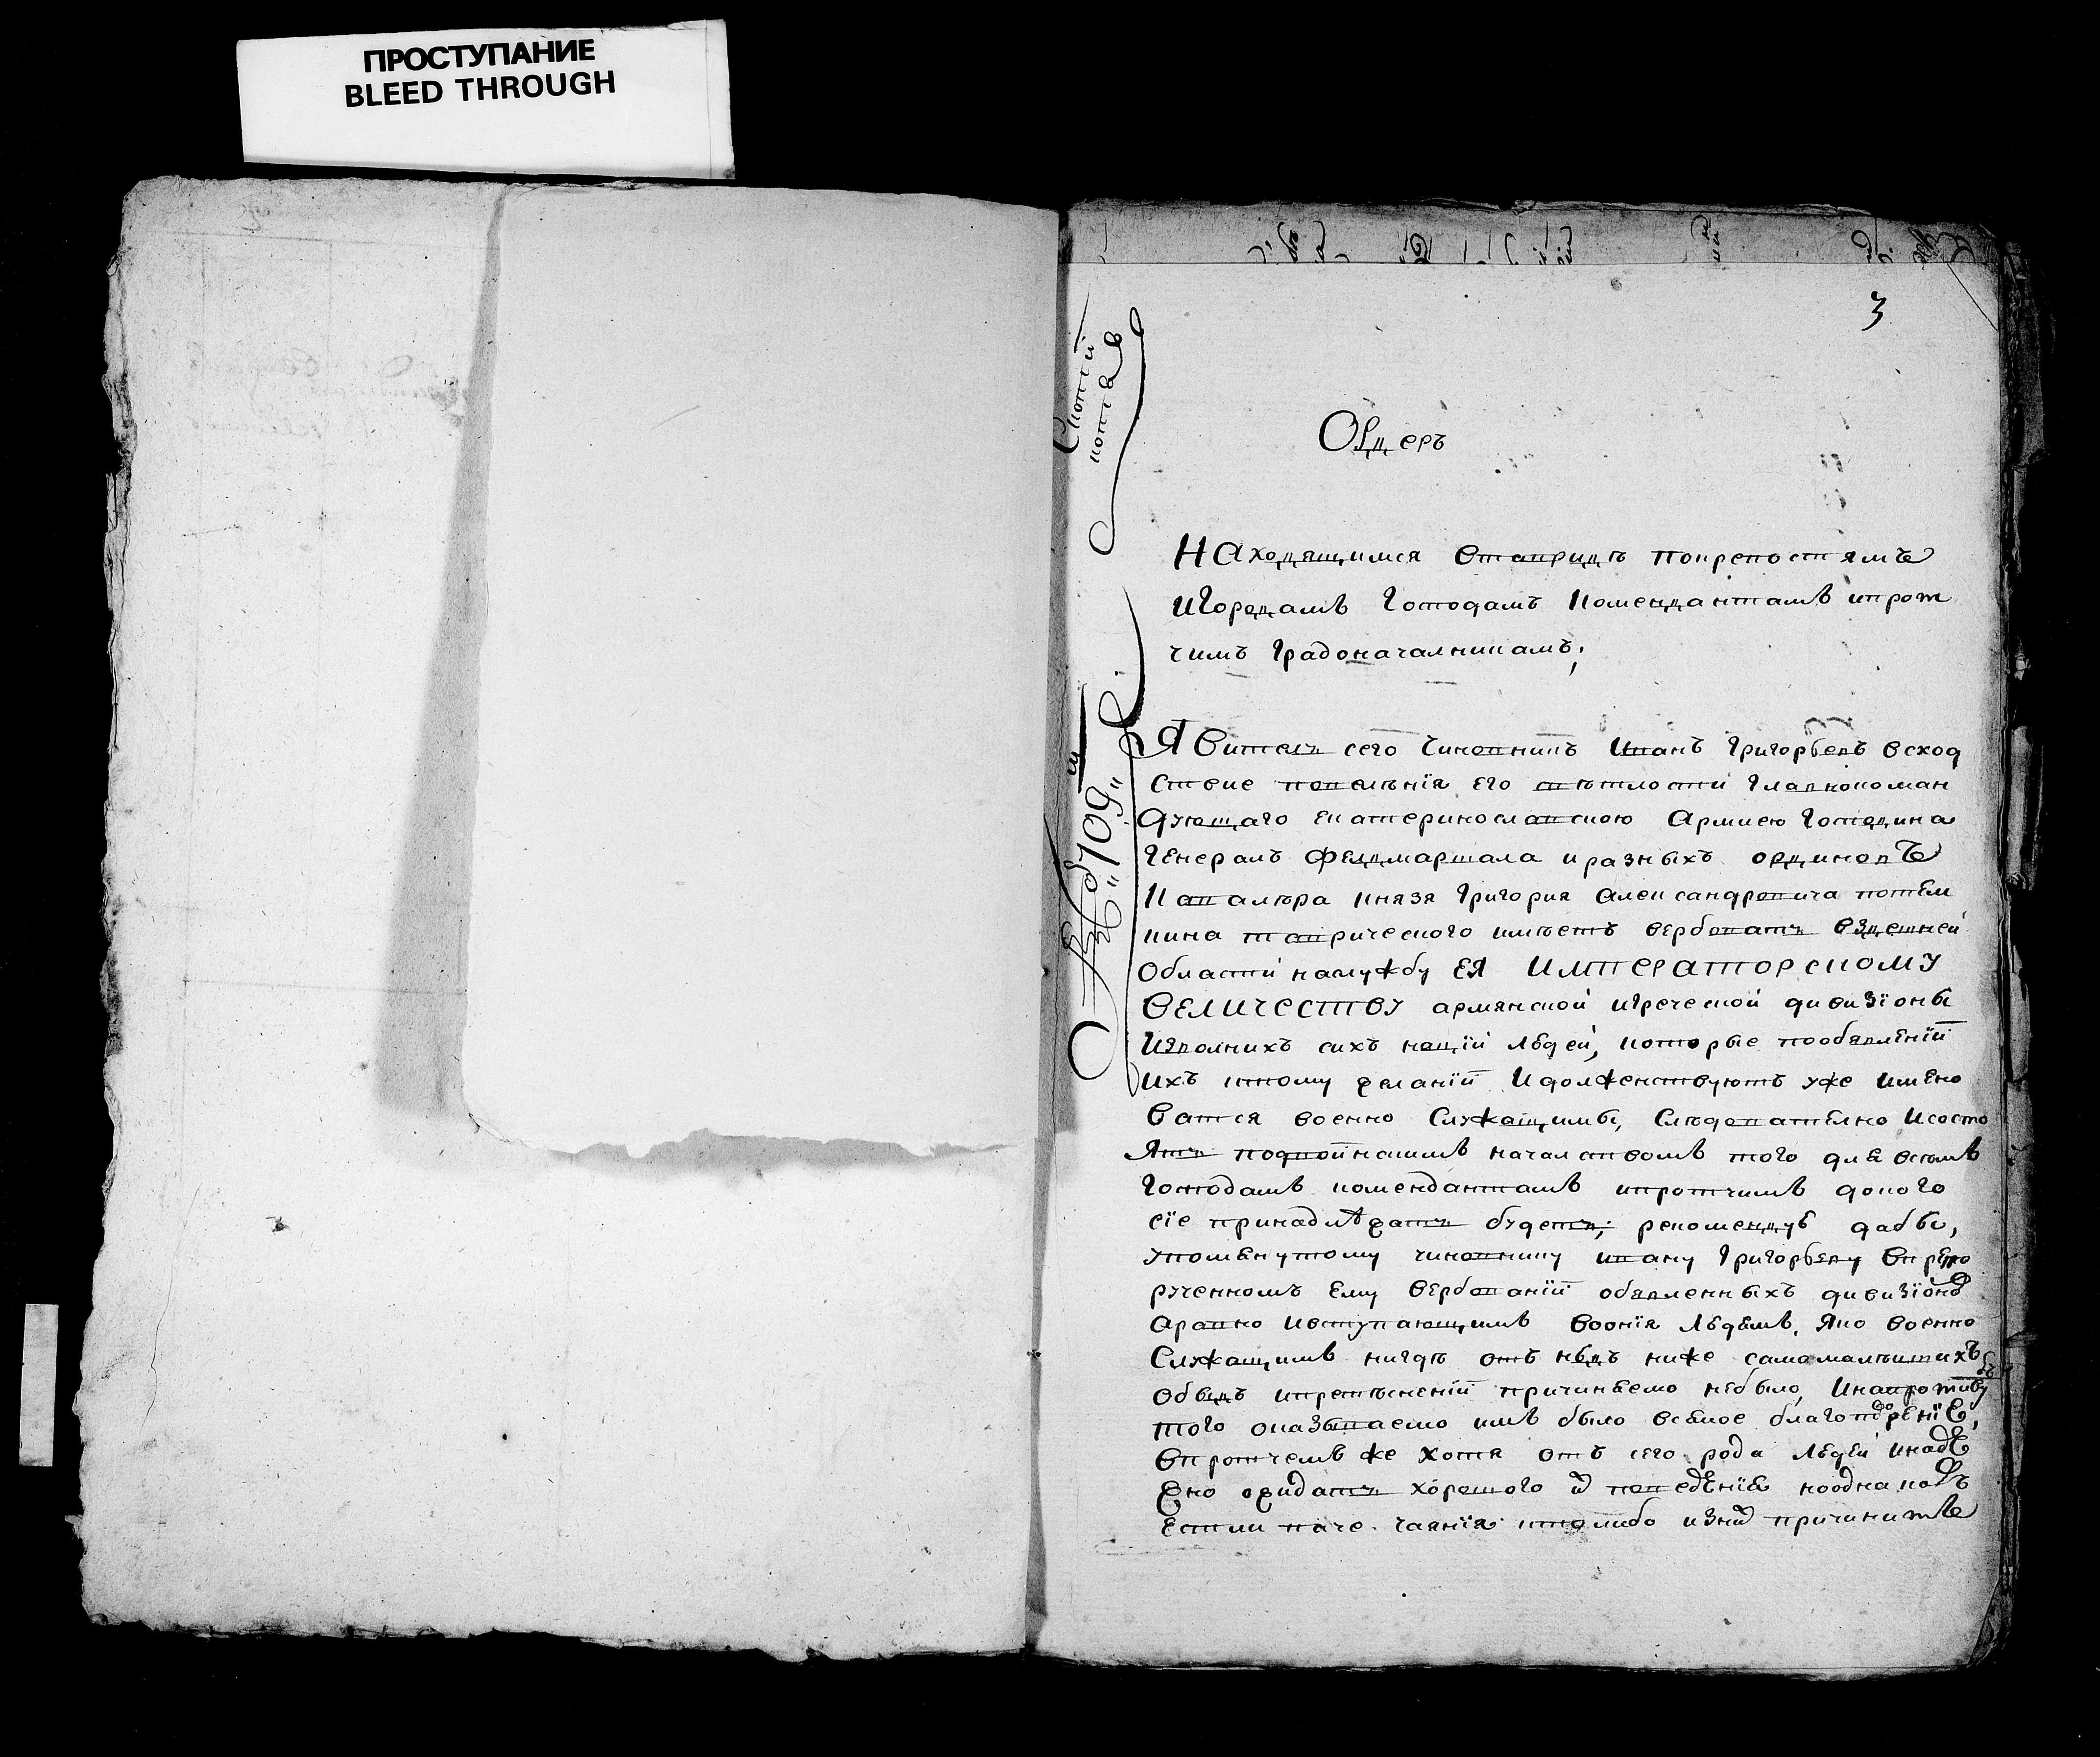 ПРОСТУПАНИЕ
BLEED THROUGH
3
Спопіи
попіав
№ 109
Ордеръ
Находящимся втавридѣ покрепостямъ
игородамъ Господамъ Комендантамъ ипрот
чимъ градоначалникамъ;
Явителъ сего Чиновникъ Иванъ Григорьевъ всход
ствие повелѣнія Его свѣтлости Главнокоман
дующаго екатеринославскою Армиею Господина
Генералъ Фелдмаршала иразныхъ ординовъ
Кавалѣра князя Григория александровича потем
кина таврического имѣетъ вербовать вздешней
Области наслужбу ЕЯ ИМПЕРАТОРСКОМУ
ВЕЛИЧЕСТВУ армянской игреческой дивизіоны
Изволнихъ сихъ націй людей, которые пообявленіи
ихъ ктому желаніи Идолженствуютъ уже имено
ватся военно Служащимы, Следователно Исосто
Ять подвоинскимъ началствомъ того для всемъ
Господамъ комендантамъ ипротчимъ докого
сіе принадлѣжать будетъ, рекомендую дабы,
упомянутому чиновнику ивану Григорьеву впрепо
рученномъ Ему вербованіи обявленныхъ дивизіоно
аравно Ивступающимъ воонія людямъ, Яко военно
Служащимъ нигде отъ ково ниже самомалѣишихъ
обыдъ ипретѣсненій причиняемо небыло, Инапротиву
того оказываемо имъ было всякое благопворенiе,
впротчемъ же хотя отъ сего рода людей инадѣ
жно ожидать хорошого поведѣніе нооднакожъ
Естли паче чаянія ктолибо изнихъ причинитъ